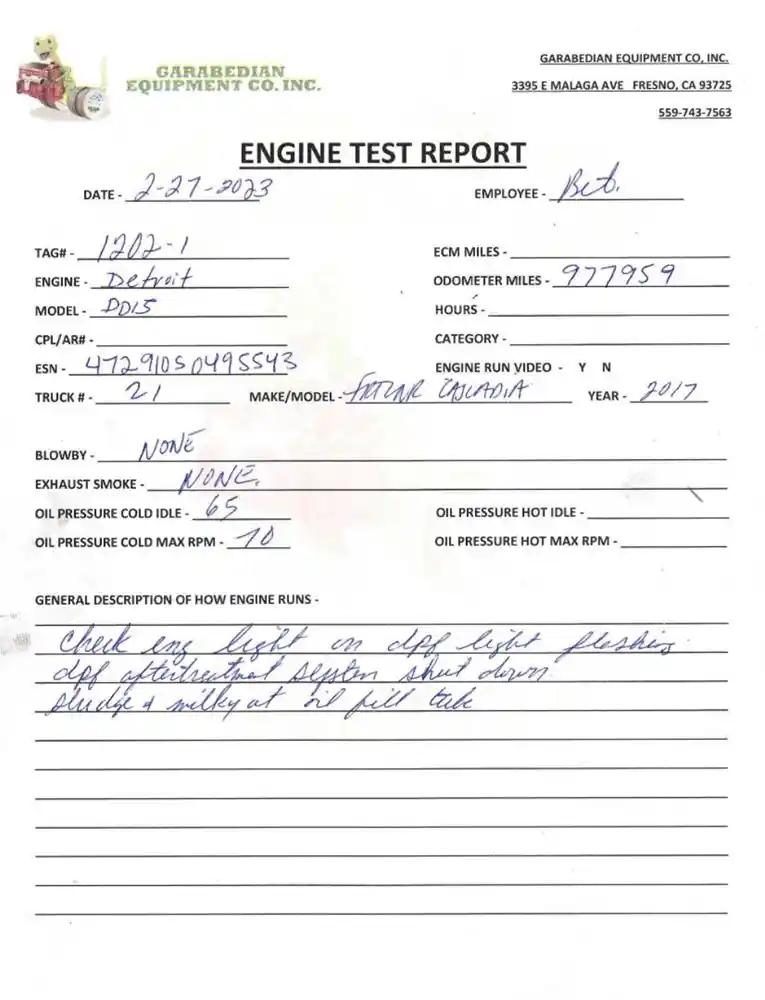 GARABEDIAN
EQUIPMENT CO. INC.
GARABEDIAN EQUIPMENT CO, INC.
3395 E MALAGA AVE FRESNO, CA 93725
559-743-7563
ENGINE TEST REPORT
DATE - 2-27-2023
EMPLOYEE -
TAG# - 1202-1
ECM MILES -
ENGINE - Detroit
ODOMETER MILES - 977959
MODEL - DD15
HOURS -
CPL/AR# -
CATEGORY -
ESN - 472910S0495543
ENGINE RUN VIDEO - Y N
TRUCK # - 21 MAKE/MODEL - FRTLNR CASCADIA YEAR - 2017
BLOWBY - NONE
EXHAUST SMOKE - NONE.
OIL PRESSURE COLD IDLE - 65
OIL PRESSURE HOT IDLE -
OIL PRESSURE COLD MAX RPM - 70
OIL PRESSURE HOT MAX RPM -
GENERAL DESCRIPTION OF HOW ENGINE RUNS -
Check eng light on dpf light flashing
dpf aftertreatment system shut down
sludge & milky at oil fill tube